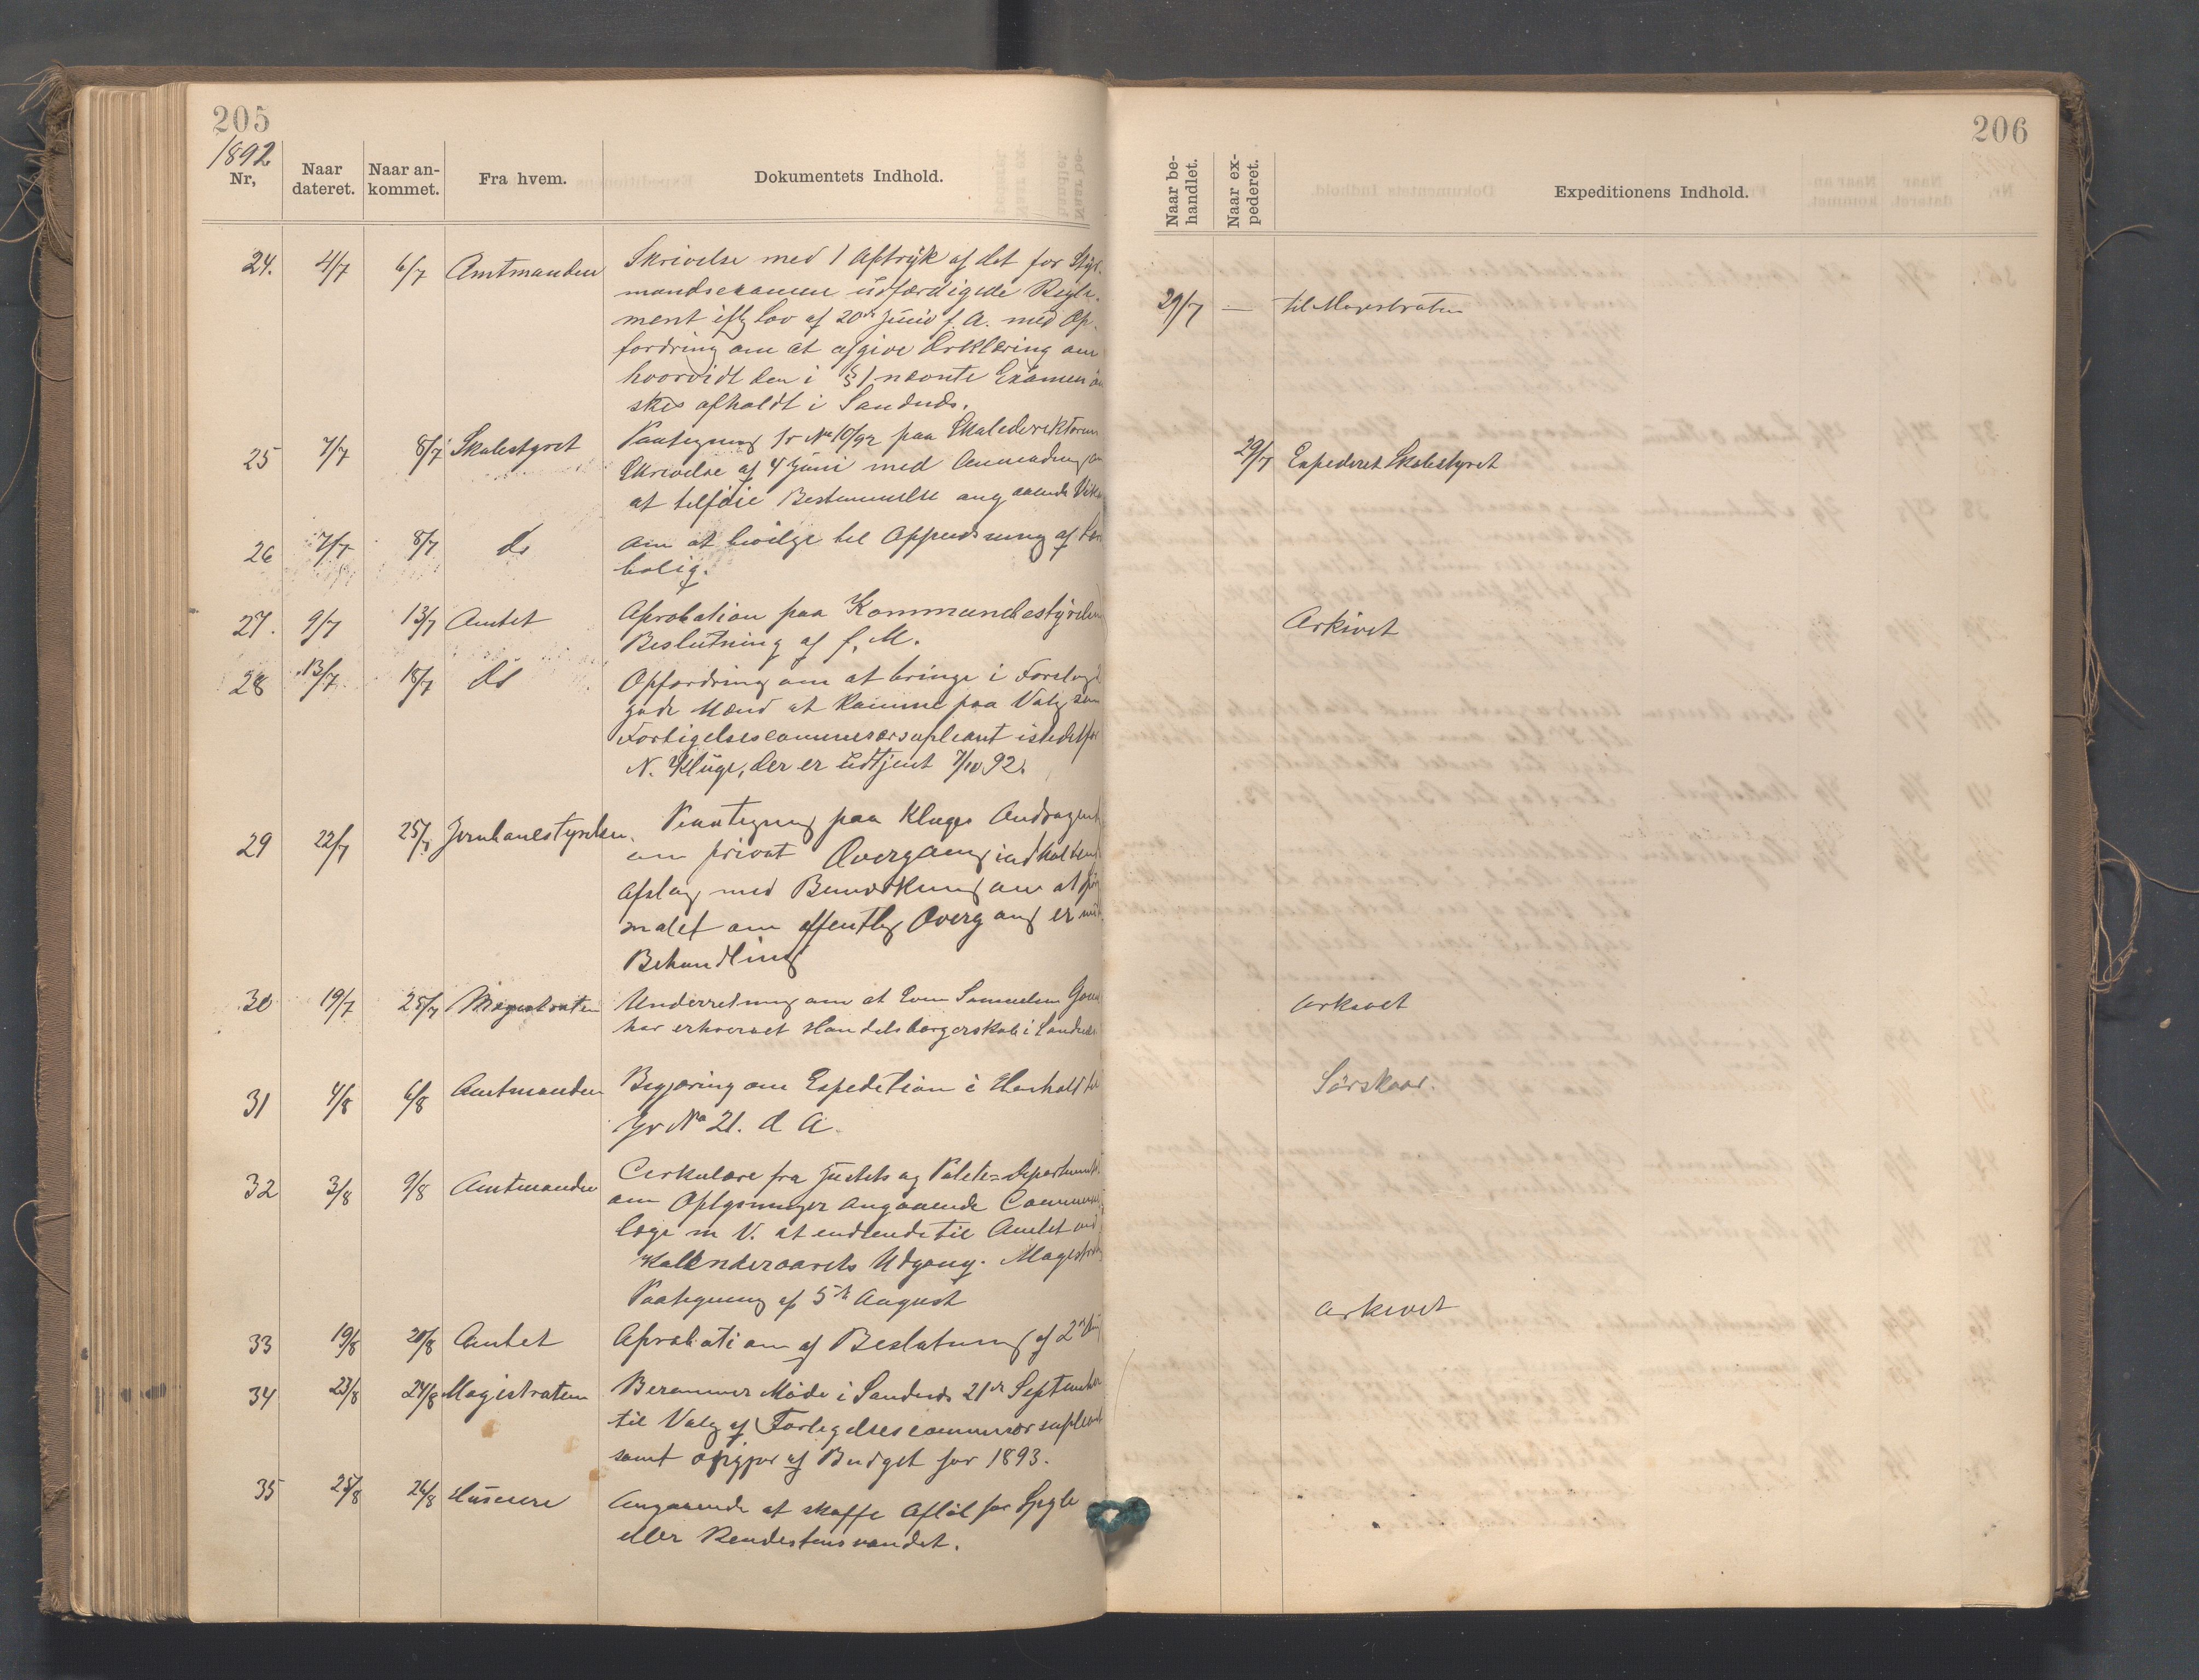 205
1892
Nr, Naar dateret. Naar ankommet. Fra hvem. Dokumentets Indhold.
24. 4/7 6/7 Amtmanden Skrivelse med 1 Aftryk af det for Styr-
mandsexamen udfærdigede Regle-
ment iflg Lov af 20de Juni f. A. med Op-
fordring om at afgive Erklæring om
hvorvidt den i § 1 nævnte Examen øn
skes afholdt i Sandnds.
25 7/7 8/7 Skolestyret Paategning Jr No 10/92 paa Skoledirektørens
Skrivelse af 4 Juni med Anmodning om
at tilføie Bestemmelse angaaende
26 7/7 8/7 do Om at bevilge til Oppudsning af
bolig.
27. 9/7 13/7 Amtet Aprobation paa Kommunebestyrelsens
Beslutning af f. M.
28 13/7 18/7 do Opfordring om at bringe i Forslag
gode Mænd at komme paa Valg som
Forligelsescommissærsupleant istedetfor
N. Kluge, der er udtjent 7/10 92.
29 22/7 25/7 Jernbanestyrelsen. Paategning paa Kluges Andragende
om privat Overgang indholdende
Afslag med Bemærkning om at
maalet om offentlig Overgang er
Behandling
30 19/7 25/7 Magistraten Underretning om at Sven Samuelsen
har erhvervet Handelsborgerskab i Sandnds
31 4/8 6/8 Amtmanden Begjæring om Expedition i Henhold til
Jr No 21. d A.
32 3/8 9/8 Amtmanden Cirkulære fra Justits og Politi=Departmentet
om Oplysninger angaaende Commune
læge m V. at indsende til Amtet ved
Kalenderaarets Udgang. Magistratens
Paategning af 5te August
33 19/8 20/8 Amtet Aprobation af Beslutning af 2den
34 23/8 24/8 Magistraten Berammer Møde i Sandnds 21de September
til Valg af Forligelsescommissær supleant
samt opgjør af Budget for 1893.
35 25/8 26/8 Huseiere Angaaende at skaffe Afløb for
eller Rendestensvandet.
206
Naar behandlet. Naar expederet. Expeditionens Indhold.
29/7 — til Magistraten
29/7 Expederet Skolestyret
Arkivet
Arkivet
Sørskaar.
Arkivet